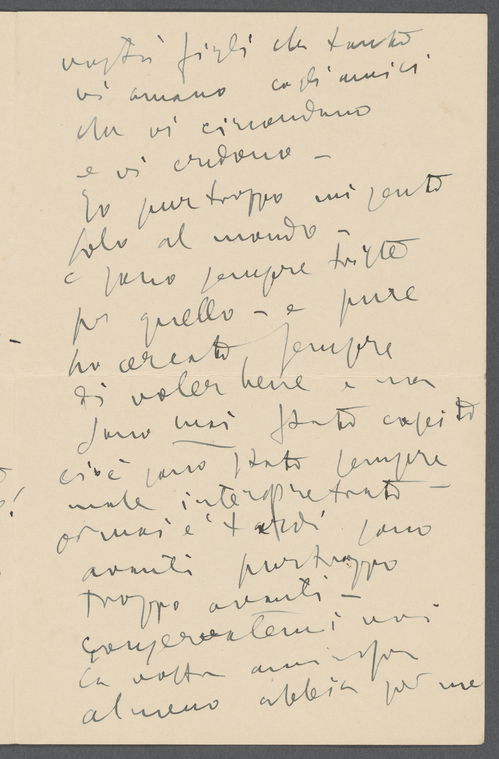 vostri figli che tanto
vi amano cogli amici
che vi circondano
e vi credono –
Io purtroppo mi sento
solo al mondo –
e sono sempre triste
per quello – e pure
ho cercato sempre
di voler bene e non
sono mai stato capito
cioè sono stato sempre
male interpretato –
ormai è tardi sono
avanti purtroppo
troppo avanti –
conservatemi voi
la vostra
almeno abbia per me